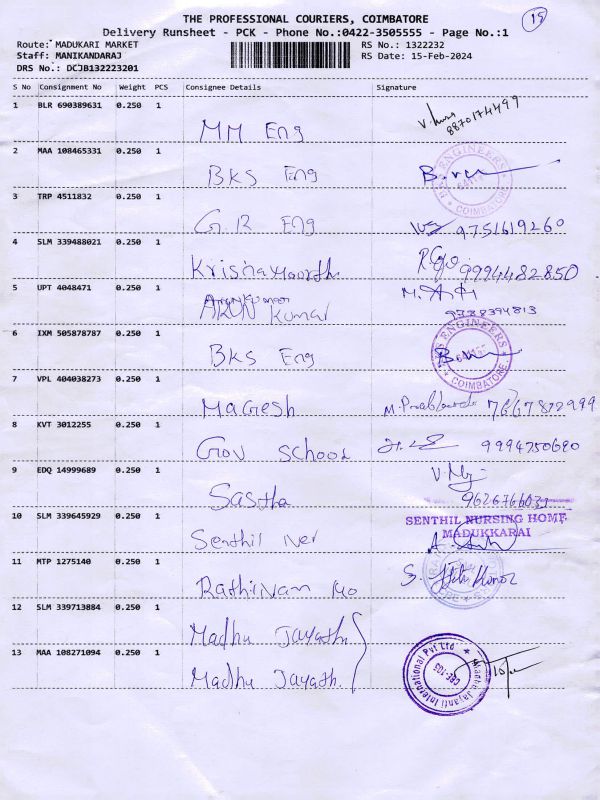 15
THE PROFESSIONAL COURIERS, COIMBATORE
Delivery Runsheet - PCK - Phone No.:0422-3505555 - Page No.:1
Route: MADUKARI MARKET RS No.: 1322232
Staff: MANIKANDARAJ RS Date: 15-Feb-2024
DRS No.: DCJB132223201
S No Consignment No Weight PCS Consignee Details Signature
1 BLR 690389631 0.250 1 MM Eng 8870174499
2 MAA 108465331 0.250 1 BKS Eng ENGINEERS COIMBATORE
3 TRP 4511832 0.250 1 G.R Eng 9751619260
4 SLM 339488021 0.250 1 Krishnamoorthi 9994482850
5 UPT 4048471 0.250 1 Arunkumar ARUN Kumar 9388394813
6 IXM 505878787 0.250 1 BKS Eng ENGINEERS COIMBATORE
7 VPL 404038273 0.250 1 Magesh
8 KVT 3012255 0.250 1 Gov School 9994750690
9 EDQ 14999689 0.250 1 Sastha
SENTHIL NURSING HOME
MADUKKARAI
10 SLM 339645929 0.250 1 Senthil Ner
11 MTP 1275140 0.250 1
12 SLM 339713884 0.250 1 Madhu Jayath
13 MAA 108271094 0.250 1 Madhu Jayath. Madhu Jayanti International Pvt Ltd CBE-105